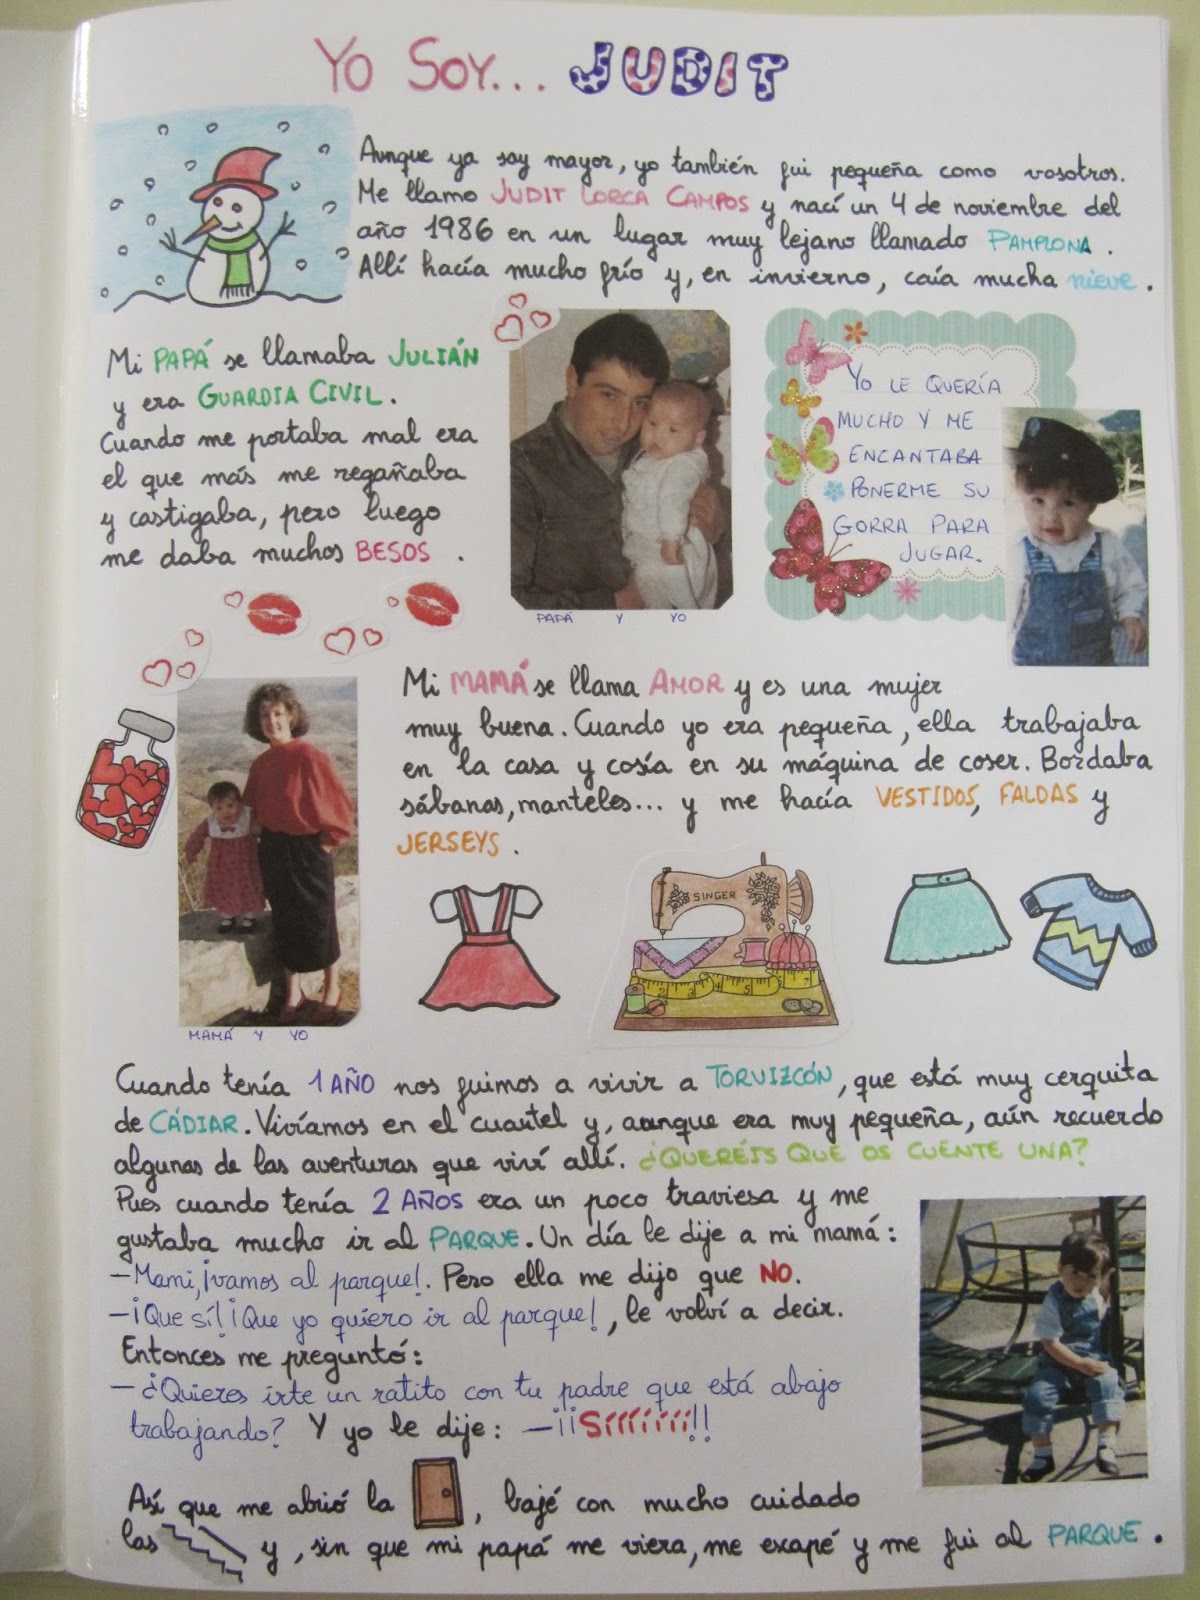 Yo Soy... JUDIT
Aunque ya soy mayor, yo también fui pequeña como vosotros.
Me llamo JUDIT LORCA CAMPOS y nací un 4 de noviembre del
año 1986 en un lugar muy lejano llamado PAMPLONA.
Allí hacía mucho frío y, en invierno, caía mucha nieve.
Mi PAPÁ se llamaba JULIÁN
y era GUARDIA CIVIL.
Cuando me portaba mal era
el que más me regañaba
y castigaba, pero luego
me daba muchos BESOS.
PAPÁ Y YO
YO LE QUERÍA
MUCHO Y ME
ENCANTABA
PONERME SU
GORRA PARA
JUGAR.
Mi MAMÁ se llama AMOR y es una mujer
muy buena. Cuando yo era pequeña, ella trabajaba
en la casa y cosía en su máquina de coser. Bordaba
sábanas, manteles... y me hacía VESTIDOS, FALDAS y
JERSEYS.
MAMÁ Y YO
SINGER
Cuando tenía 1 AÑO nos fuimos a vivir a TORVIZCÓN, que está muy cerquita
de CÁDIAR. Vivíamos en el cuartel y, aunque era muy pequeña, aún recuerdo
algunas de las aventuras que viví allí. ¿QUERÉIS QUE OS CUENTE UNA?
Pues cuando tenía 2 AÑOS era un poco traviesa y me
gustaba mucho ir al PARQUE. Un día le dije a mi mamá:
—Mami, ¡vamos al parque!. Pero ella me dijo que NO.
—¡Que sí! ¡Que yo quiero ir al parque!, le volví a decir.
Entonces me preguntó:
—¿Quieres irte un ratito con tu padre que está abajo
trabajando? Y yo le dije: —¡¡Síííííííí!!
Así que me abrió la , bajé con mucho cuidado
las y, sin que mi papá me viera, me escapé y me fui al PARQUE.